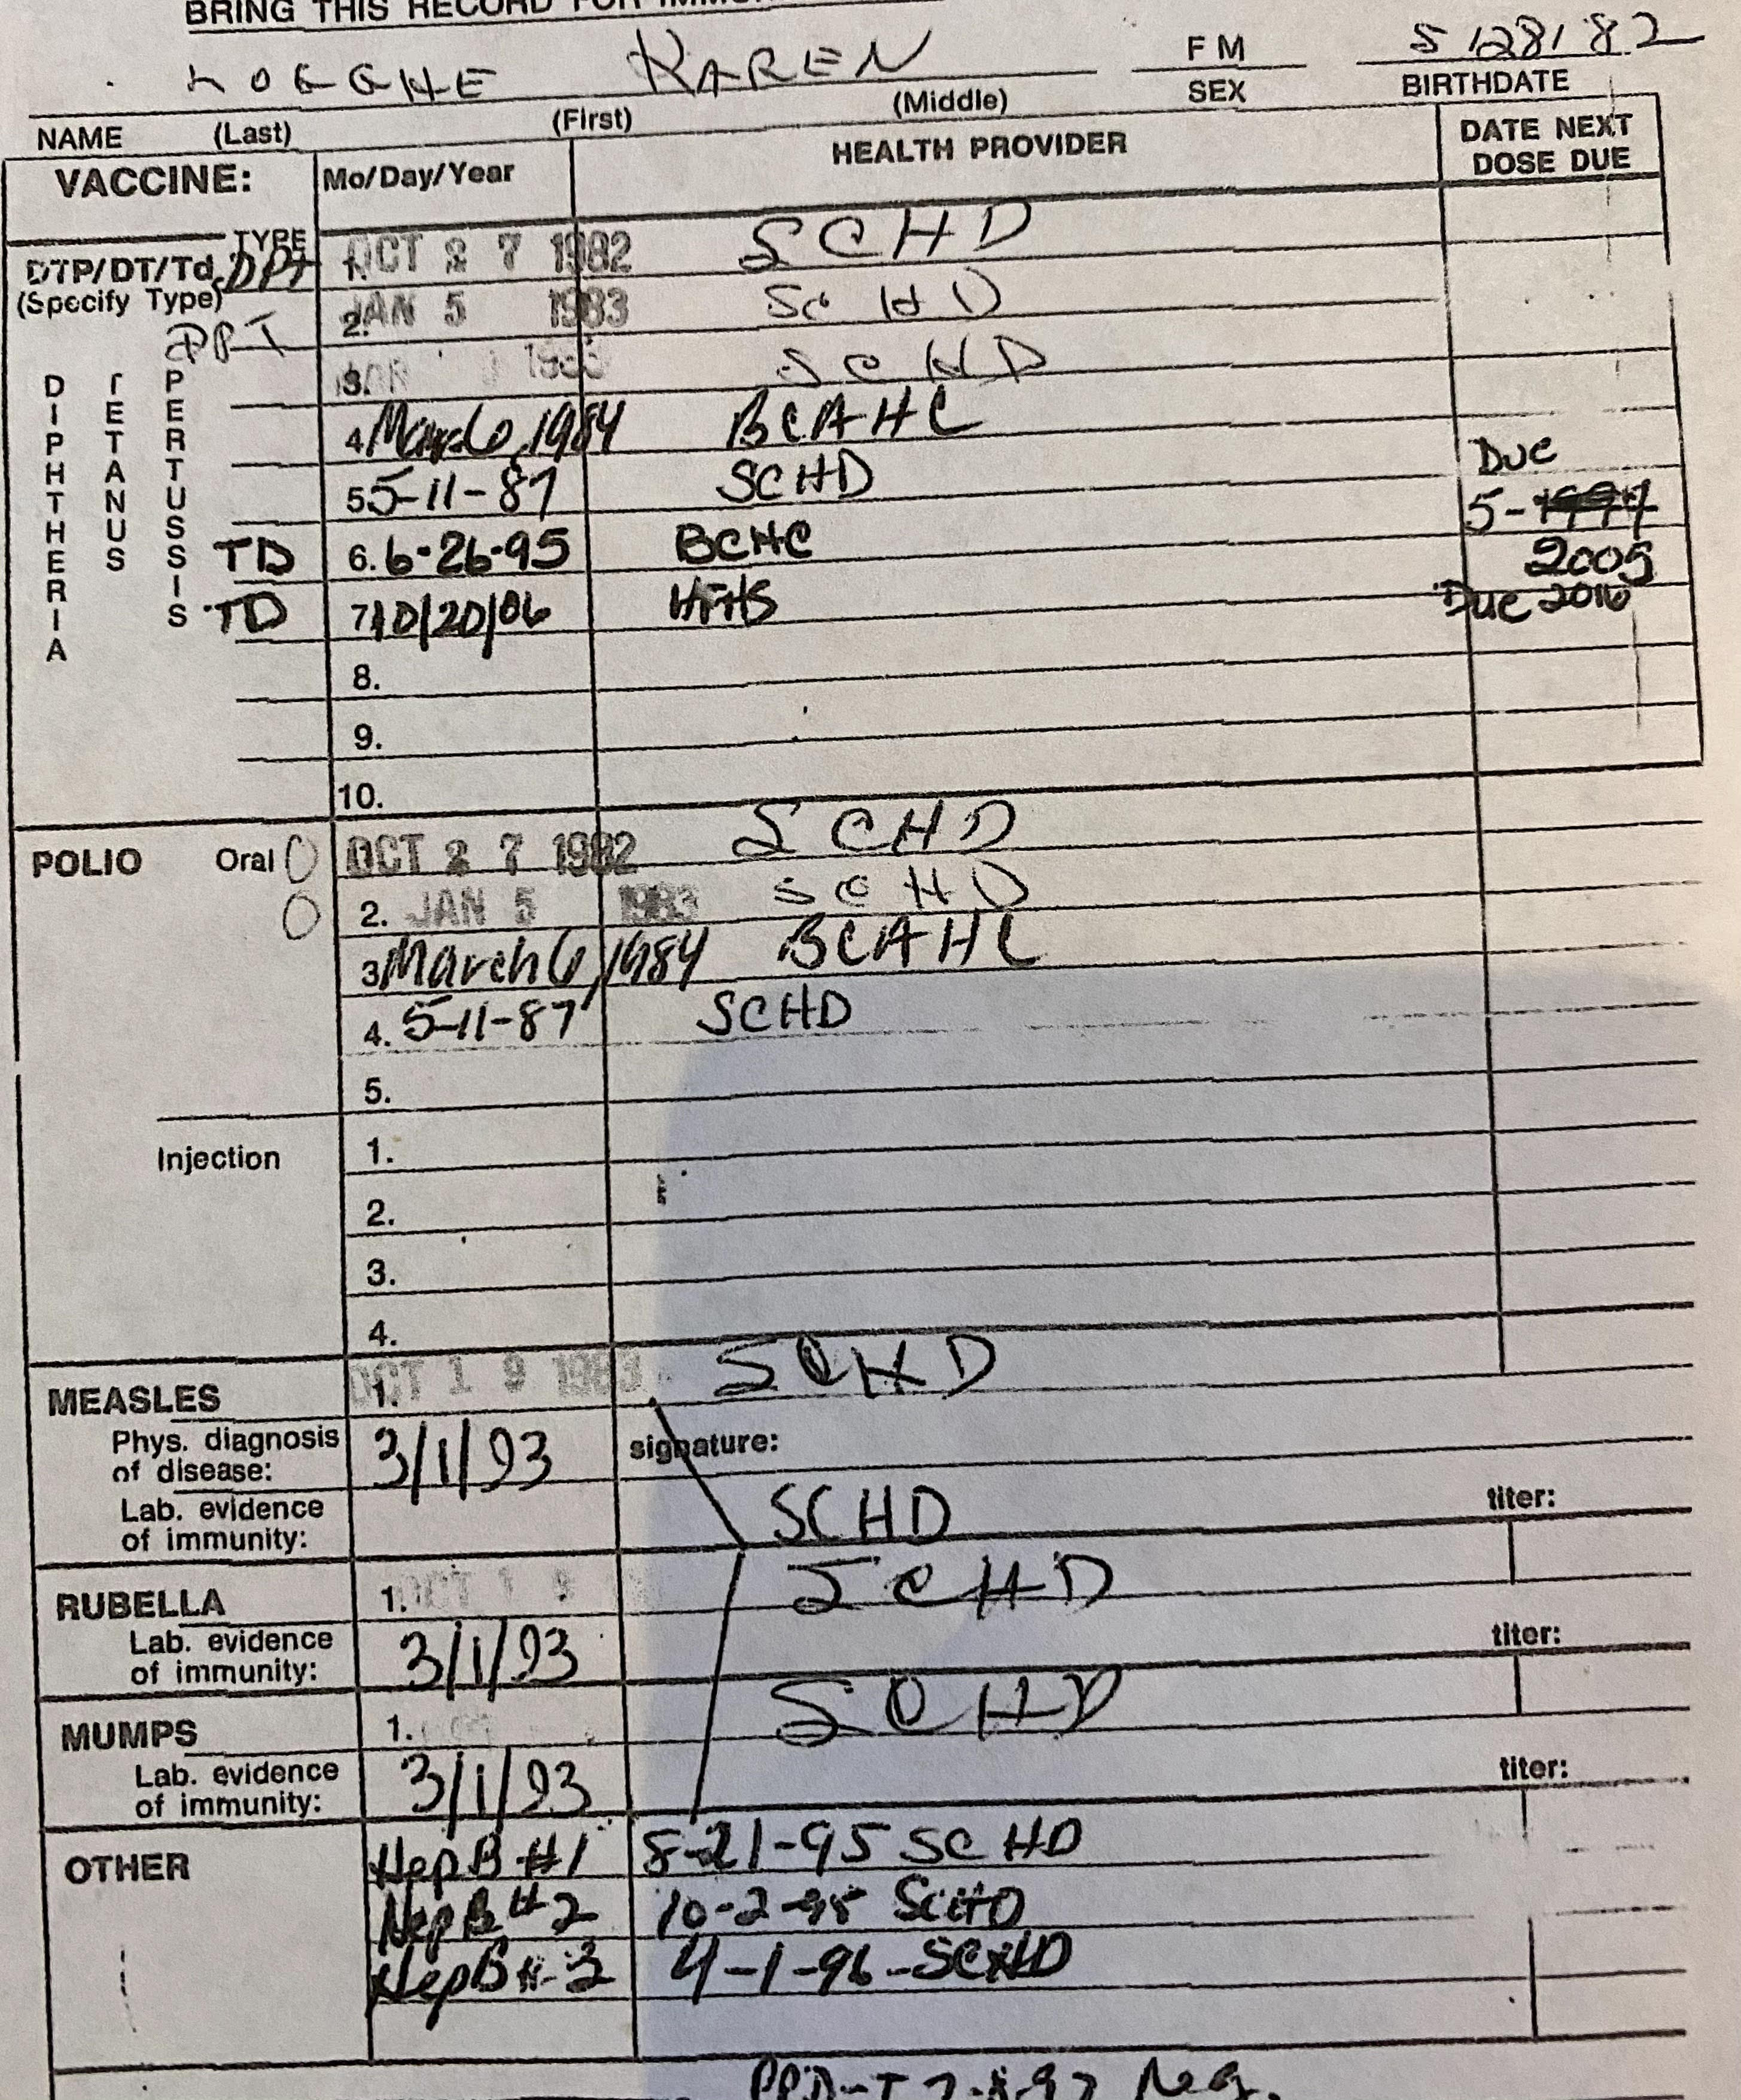 BRING THIS RECORD FOR
KAREN F M 5/28/82
NAME (Last) (First) (Middle) SEX BIRTHDATE
VACCINE: Mo/Day/Year HEALTH PROVIDER DATE NEXT DOSE DUE
TYPE
DTP/DT/Td DPT 1. OCT 27 1982 SCHD
(Specify Type)
DPT 2. JAN 5 1983 SCHD
3. SCHD
4. March 6, 1984 BCAHC
5. 5-11-87 SCHD Due 5-1997
TD 6. 6-26-95 BCHC 2005
TD 7. 10/20/06 Due 2016
DIPHTHERIA TETANUS PERTUSSIS
8.
9.
10.
POLIO Oral O 1. OCT 27 1982 SCHD
O 2. JAN 5 1983 SCHD
3. March 6, 1984 BCAHC
4. 5-11-87 SCHD
5.
Injection 1.
2.
3.
4.
MEASLES 1. OCT 19 1983 SCHD
Phys. diagnosis of disease: 3/1/93 signature:
Lab. evidence of immunity: SCHD titer:
RUBELLA 1. OCT 19 SCHD
Lab. evidence of immunity: 3/1/93 titer:
MUMPS 1. SCHD
Lab. evidence of immunity: 3/1/93 titer:
OTHER HepB #1 8-21-95 SCHD
HepB #2 10-2-95 SCHD
HepB #3 4-1-96 - SCHD
Neg.